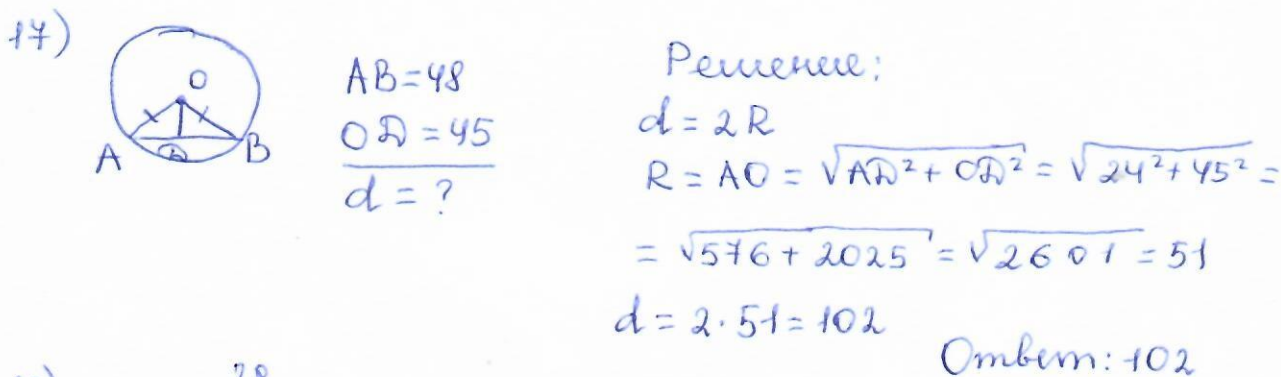 17)
O
A D B
AB=48
OD=45
d=?
Решение:
d=2R
R=AO=√AD²+OD²=√24²+45²=
=√576+2025=√2601=51
d=2·51=102
Ответ: 102